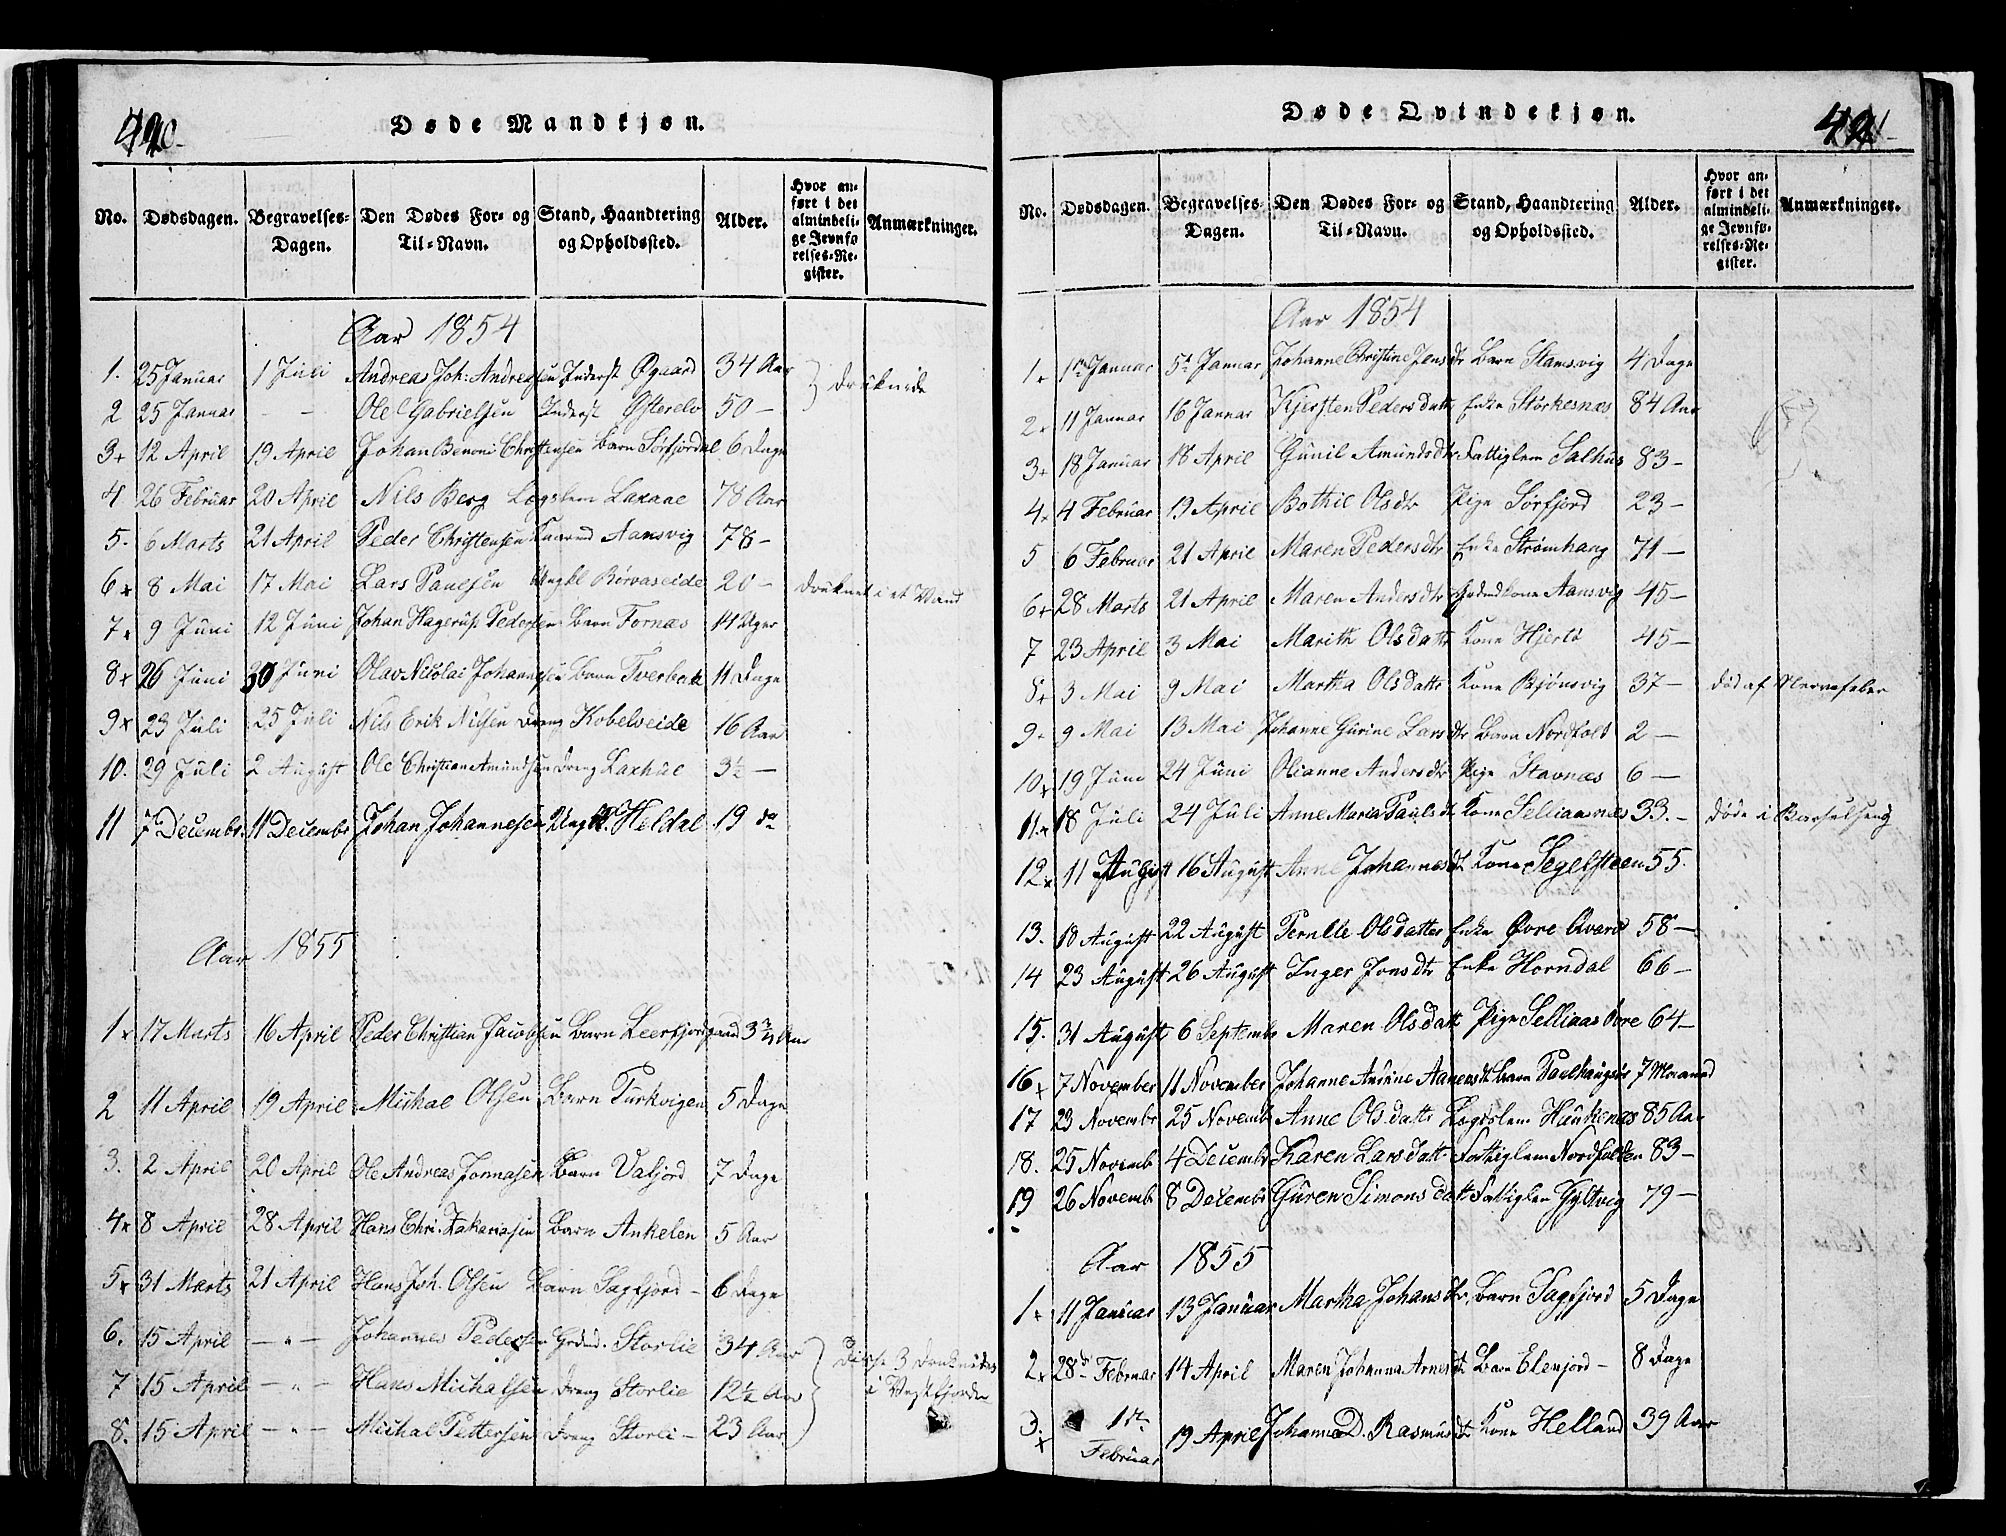 Døde Mandkjøn.
No. Dødsdagen. Begravelses-Dagen. Den Dødes For- og Til-Navn. Stand, Haandtering og Opholdssted. Alder. Hvor anført i det almindelige Jevnførelses-Register. Anmærkninger.
Aar 1854
1. 25 Januar 1 Juli Andreas Joh: Andreasen Inderst Øgaard 34 Aar druknede
2 25 Januar - - Ole Gabrielsen Inderst Østerelv 50 -
3+ 12 April 19 April Johan Benoni Christensen Barn Sørfjordal 6 Dage
4 26 Februar 20 April Nils Berg Lægslem Laxaae 78 Aar
5. 6 Marts 21 April Peder Christensen Aansvig 78 -
6+ 8 Mai 17 Mai Lars Paulsen Ungkl Børvaseide 20 - druknet i et Vand
7+ 9 Juni 12 Juni Johan Hagerup Pedersen Barn Fornæs 14 Uger
8+ 26 Juni 30 Juni Olav Nicolai Johannesen Barn Tverbak 11 Dage
9+ 23 Juli 25 Juli Nils Erik Nilsen Dreng Kobelveide 16 Aar
10. 29 Juli 2 August Ole Christian Amundsen Dreng Laxhul 3½ -
11 7 Decembr 11 Decembr Johan Johannesen Ungk. Heldal 19 do
Aar 1855
1+ 17 Marts 16 April Peder Christian Jacobsen Barn Leerfjordgaard 3 Aar
2 11 April 19 April Michal Olsen Barn Turkvigen 5 Dage
3. 2 April 20 April Ole Andreas Jonnasen Barn Valjord 7 Dage
4+ 8 April 28 April Hans Chri. Zakariasen Barn Ankelen 5 Aar
5+ 31 Marts 21 April Hans Joh. Olsen Barn Sagfjord - 6 Dage
6. 15 April - " - Johannes Pedersen Grdmd. Storlie 34 Aar Disse 3 druknede
7 15 April - " - Hans Michalsen Dreng Storlie 12½ Aar i Vestfjorden
8. 15 April - " - Michal Pettersen Dreng Storli - 23 Aar
Døde Qvindekjøn.
No. Dødsdagen. Begravelses-Dagen. Den Dødes For- og Til-Navn. Stand, Haandtering og Opholdssted. Alder. Hvor anført i det almindelige Jevnførelses-Register. Anmærkninger.
Aar 1854
1+ 1ste Januar 5te Januar Johanne Christine Jensdtr Barn Stamsvig 4 Dage
2+ 11 Januar 16 Januar Kjersten Pedersdattr Enke Storkesnæs 84 Aar
3+ 18 Januar 18 April Gunil Amundsdtr Fattiglem Salhus 83 -
4+ 4 Februar 19 April Bothil Olsdtr Pige Sørfjord 23 -
5 6 Februar 21 April Maren Pedersdtr Enke Strømhaug 71 -
6+ 28 Marts 21 April Maren Andersdtr Grdmdkone Aansvig 45 -
7 23 April 3 Mai Marith Olsdattr Kone Hjertø 45 -
8+ 3 Mai 9 Mai Martha Olsdattr Kone Bjønsvig 37 - død af Nervefeber
9+ 9 Mai 13 Mai Johanne Gurine Larsdtr Barn Nordfold 2 -
10+ 19 Juni 24 Juni Olianne Andersdtr Pige Stavnæs 6 -
11+ 18 Juli 24 Juli Anne Maria Paulsdtr Kone Selliaasnæs 33. - døde i Barselseng
12+ 11 August 16 August Anne Johannesdtr Kone Segelsteen 55.
13. 18 August 22 August Pernille Olsdatter Enke Øvre Qvarv 58 -
14 23 August 26 August Inger Jonsdtr Enke Horndal 66 -
15. 31 August 6 Septembr Maren Olsdatt Pige Selliaas Øvre 64 -
16+ 7 November 11 November Johanne Andrine Aanensdtr Barn 7 Maaned
17 23 Novembr 25 Novembr Anne Olsdattr Lægdslem Haukenæs 85 Aar
18. 25 Novemb 4 Decembr Karen Larsdatt Fattiglem Nordfolden 83 -
19 26 Novemb 8 Decembr Guren Simonsdatt Fattiglem Gyltvig 79 -
Aar 1855
1+ 11 Januar 13 Januar Martha Johansdtr. Barn Sagfjord 5 Dage
2+ 28de Februar 14 April Maren Johanna Arnesdtr Barn Elenjord - 8 Dage
3+ 1ste Februar 19 April Johanna D. Rasmusdtr Kone Helland 39 Aar